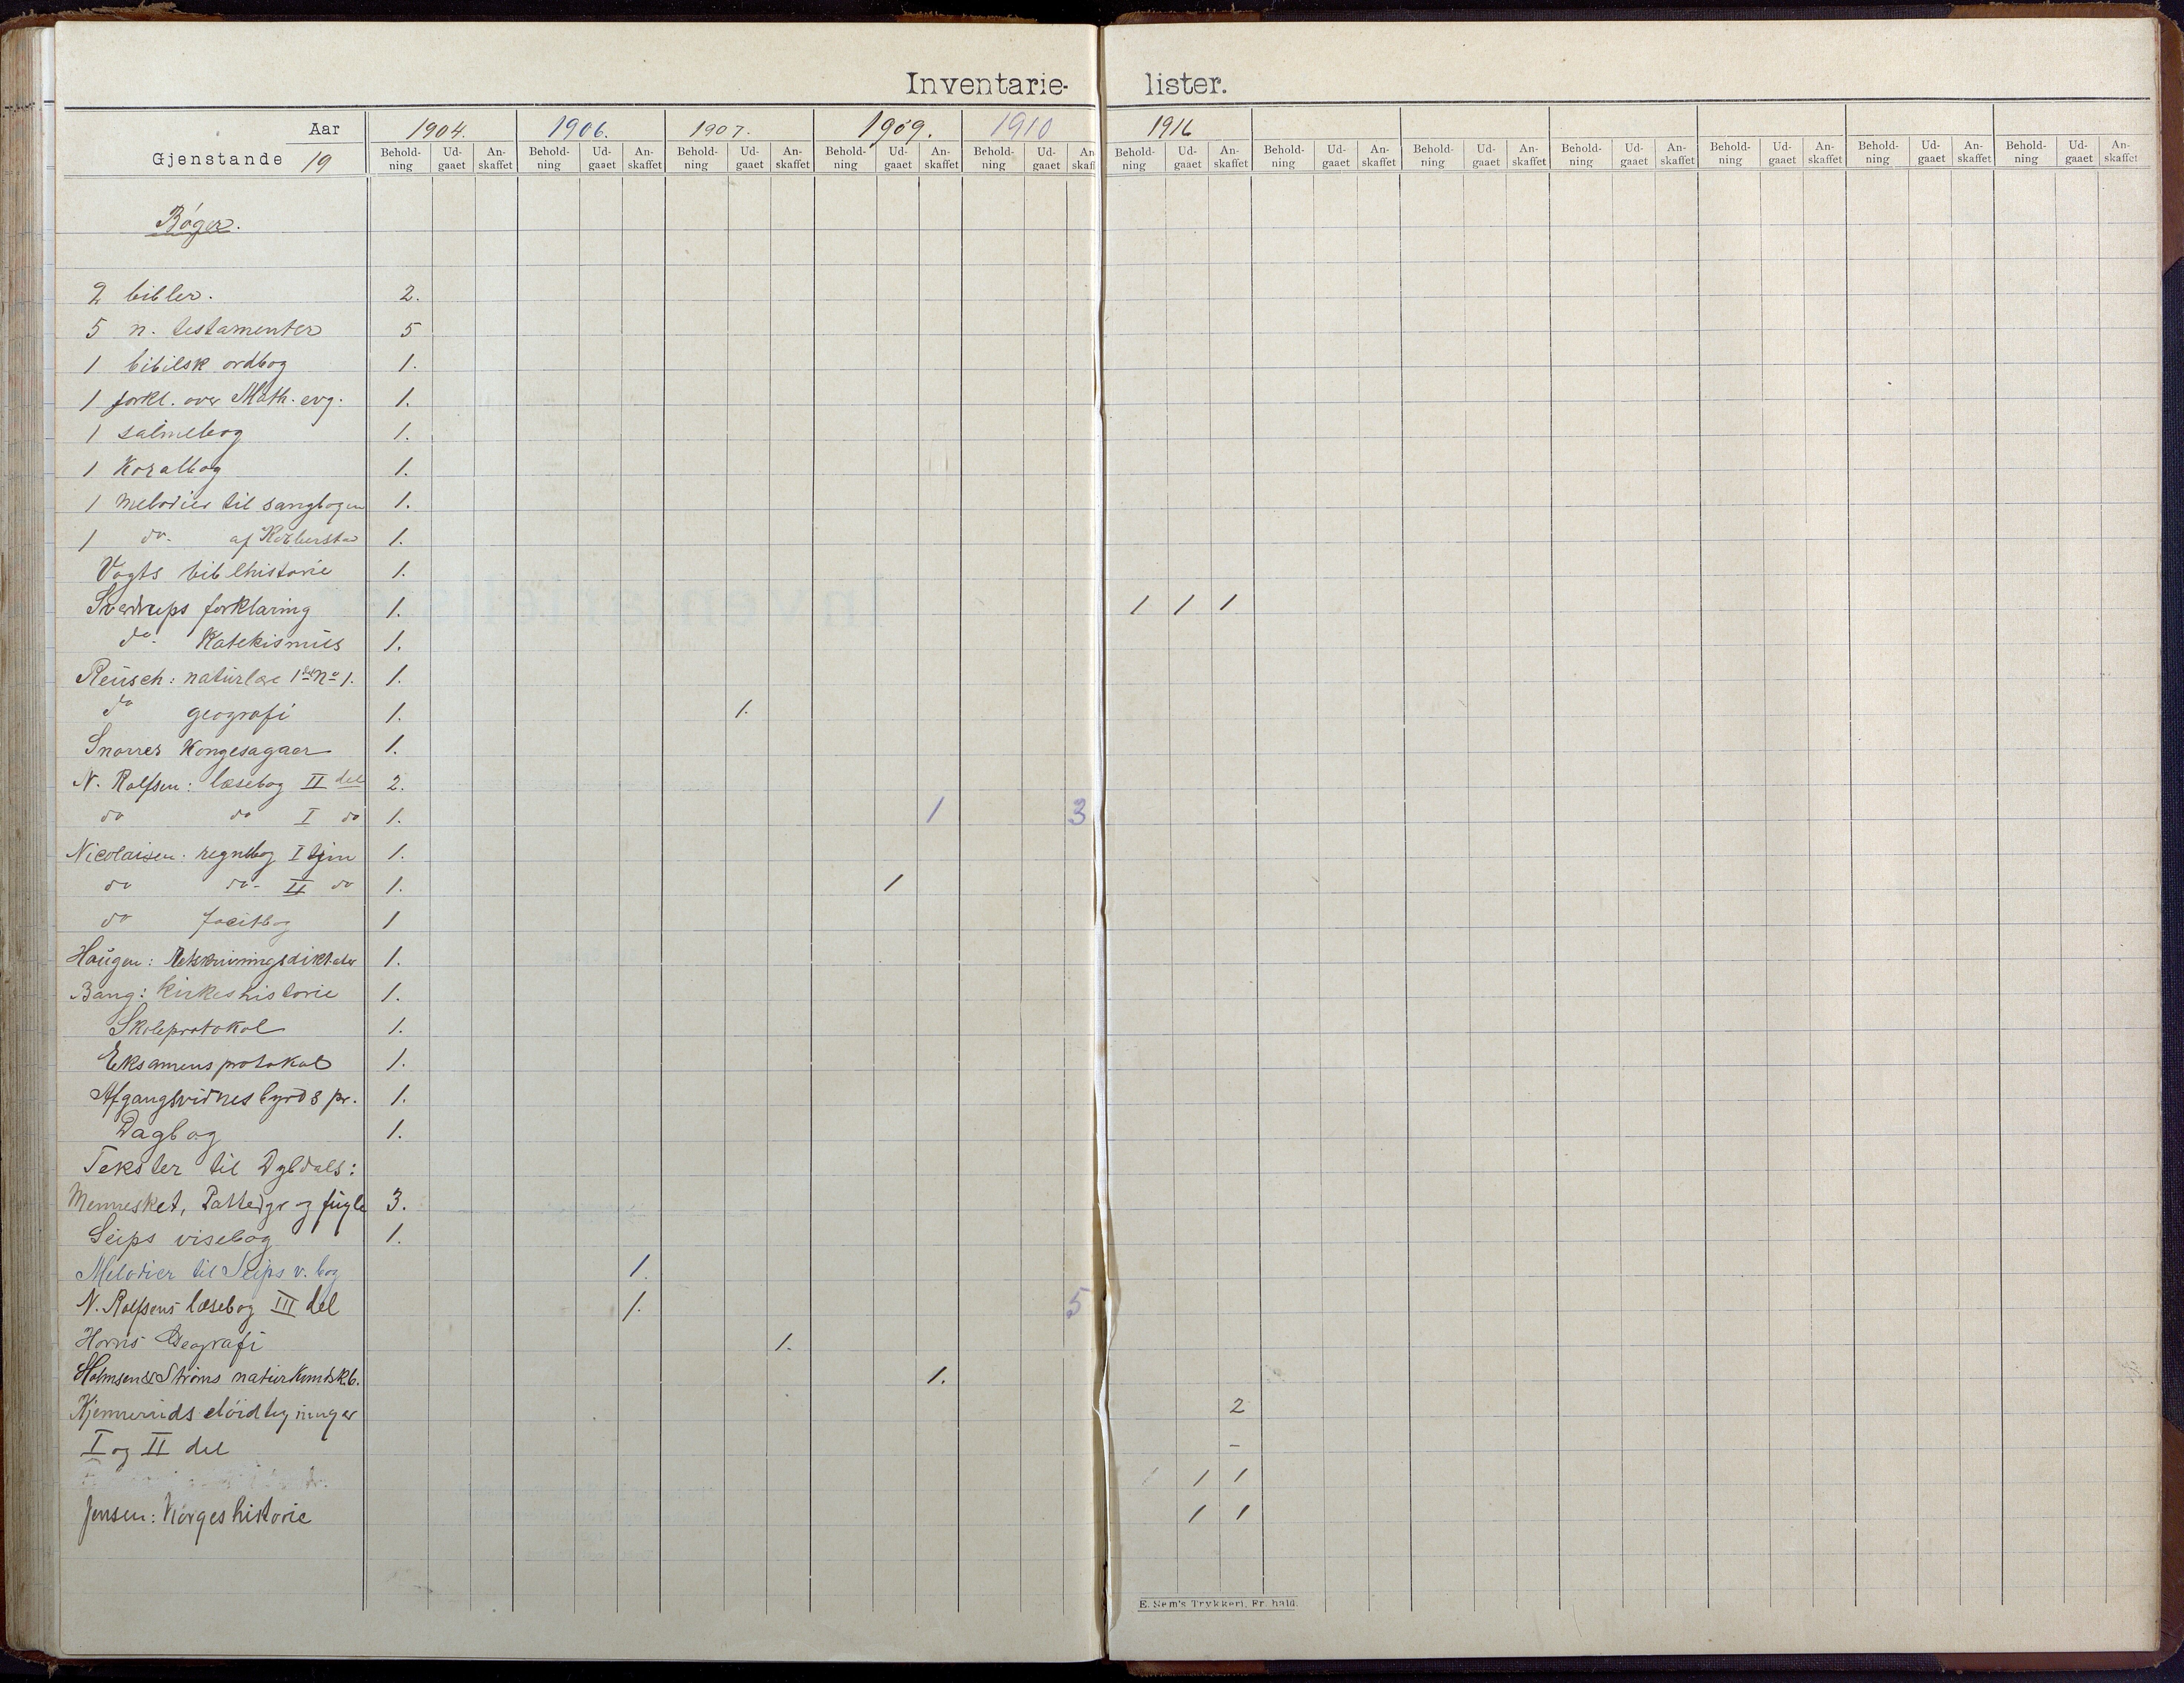 Inventarie- lister.
Aar 1904. 1906. 1907. 1909. 1910 1916
Gjenstande 19
Behold-ning Ud-gaaet An-skaffet Behold-ning Ud-gaaet An-skaffet Behold-ning Ud-gaaet An-skaffet Behold-ning Ud-gaaet An-skaffet Behold-ning Ud-gaaet An-skaff Behold-ning Ud-gaaet An-skaffet Behold-ning Ud-gaaet An-skaffet Behold-ning Ud-gaaet An-skaffet Behold-ning Ud-gaaet An-skaffet Behold-ning Ud-gaaet An-skaffet Behold-ning Ud-gaaet An-skaffet Behold-ning Ud-gaaet An-skaffet
Bøger.
2 bibler. 2.
5 n. testamenter 5
1 bibilsk ordbog 1.
1 forkl. over Math. evg. 1.
1 salmebog 1.
1 Koralbog 1.
1 Melodier til sangbogen 1.
1 do. af 1.
Vogts bibelhistorie 1.
Sverdrups forklaring 1. 1 1 1
do. Katekismus 1.
Reusch: naturlære 1ste No 1. 1.
do geografi 1. 1.
Snorres Kongesagaer 1.
N. Rolfsen: læsebog II del 2.
do do I do 1. 1 3
Nicolaisen: regnebog I trin 1.
do do- II do 1. 1
do facitbog 1
Haugen: Retskrivningsdiktater 1.
Bang: Kirkeshistorie 1.
Skoleprotokol 1.
Eksamensprotokol 1.
Afgangsvidnesbyrds pr. 1.
Dagbog 1.
Tekster til Dybdals:
Mennesket, Pattedyr og fugle 3.
Seips visebog 1.
Melodier til Seips v. bog 1.
N. Rolfsens læsebog III del 1. 5
Horns Geografi 1.
Holmsen & Strøms naturkundsk.b. 1.
Kjenneruds sløidtegninger 2
I og II del -
1 1 1
Jensen: Norgeshistorie 1 1
E. Sem's Trykkeri, Fr. hald.